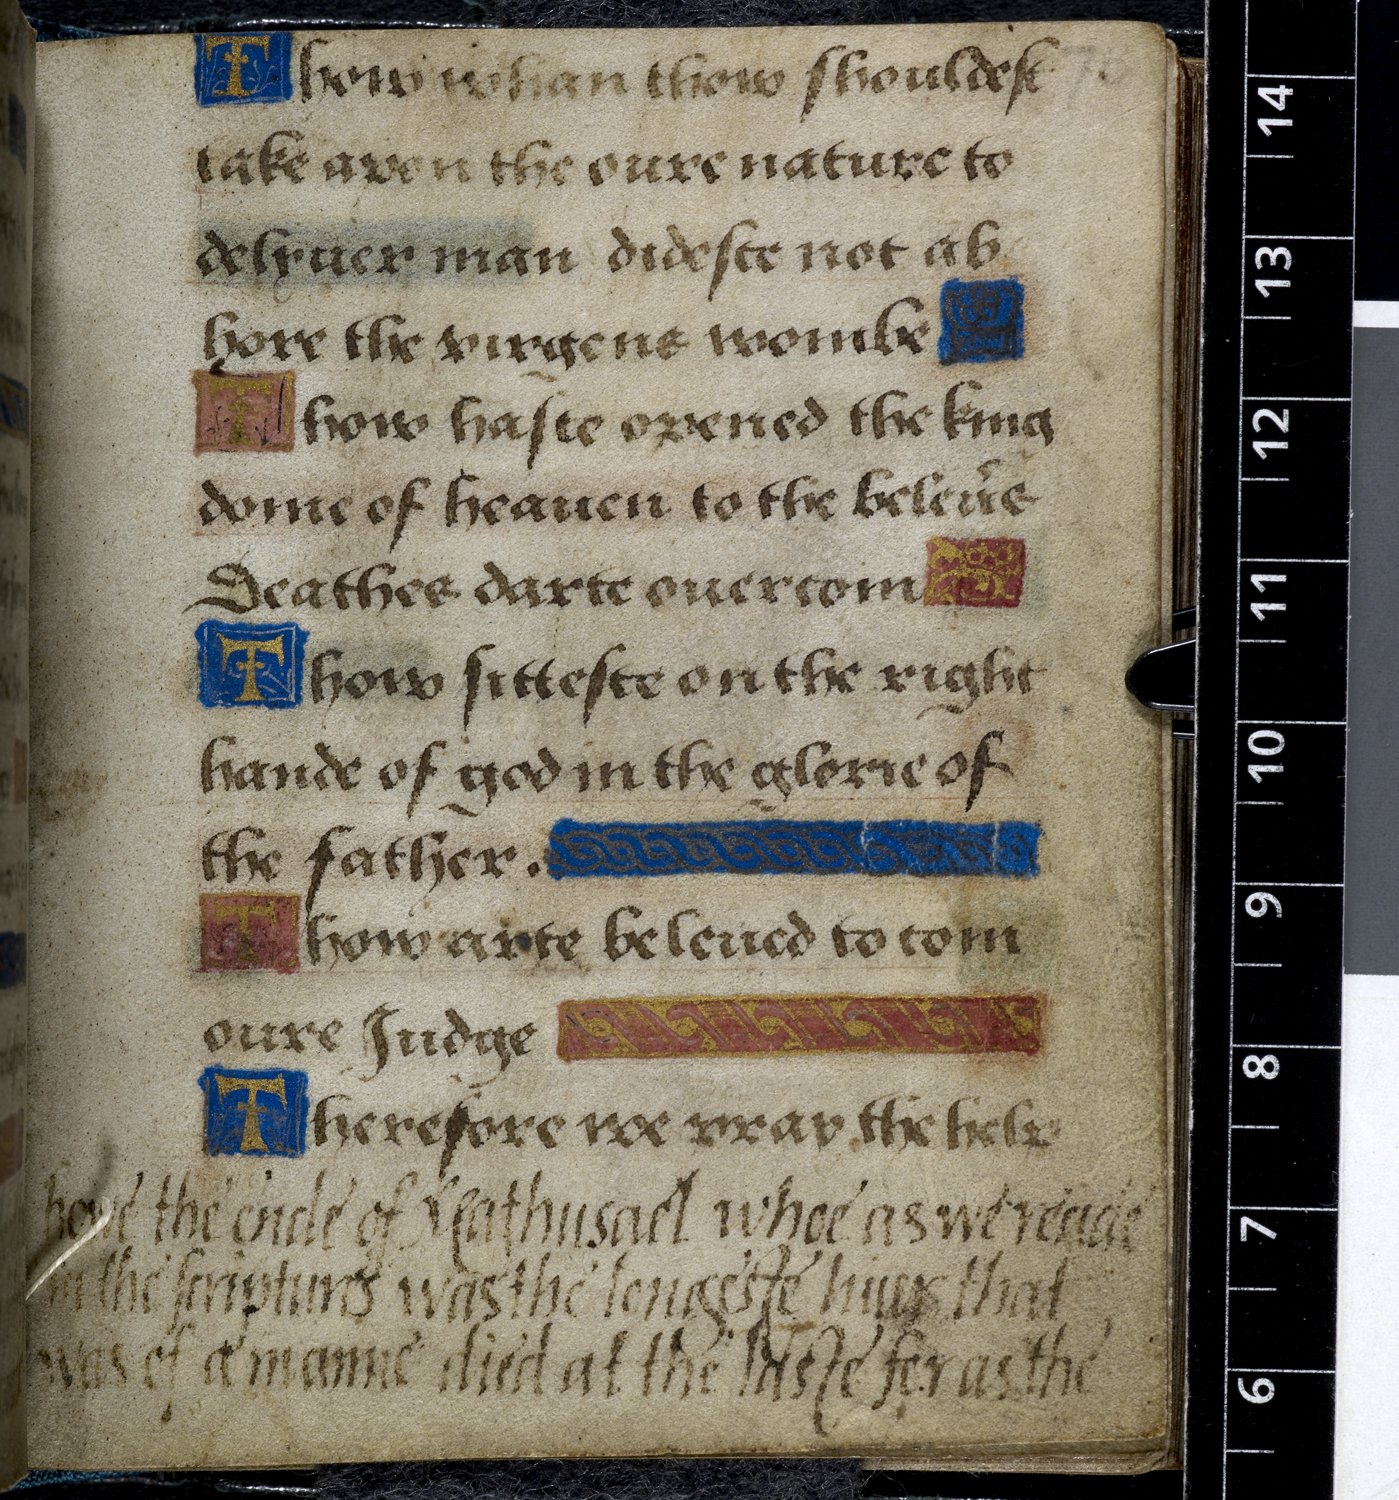 Thow whan thow shouldest
take apon the oure nature to
delyuer man dideste not ab
hore the virgens wombe
Thow haste opened the king
dome of heauen to the beleūs
Deathes darte ouercom
Thow sitteste on the right
hande of god in the glorie of
the father.
Thow arte beleued to com
oure Judge
Therefore we pray the help
howe the ende of Mathusael whoe as we reade
in the scriptures was the longeste liuer that
was of a manne died at the laste for as the
14
13
12
11
10
9
8
7
6